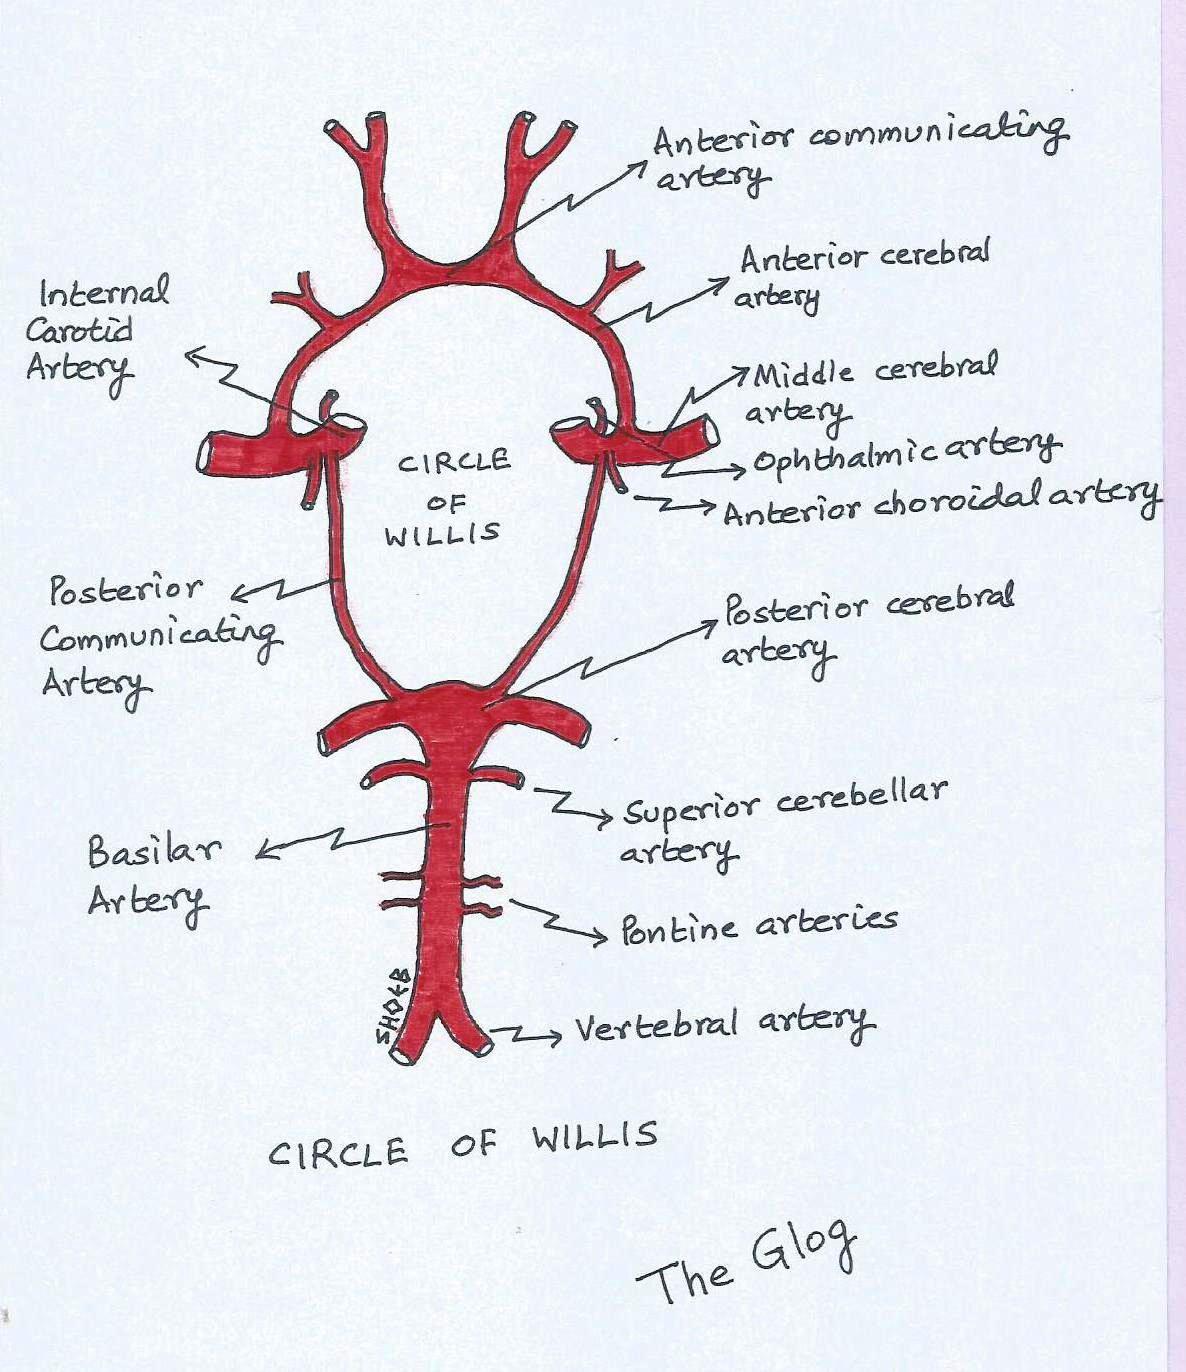 Anterior communicating
artery
Anterior cerebral
artery
Internal
Carotid
Artery
Middle cerebral
artery
Ophthalmic artery
Anterior choroidal artery
CIRCLE
OF
WILLIS
Posterior
Communicating
Artery
Posterior cerebral
artery
Superior cerebellar
artery
Basilar
Artery
Pontine arteries
Vertebral artery
CIRCLE OF WILLIS
The Glog